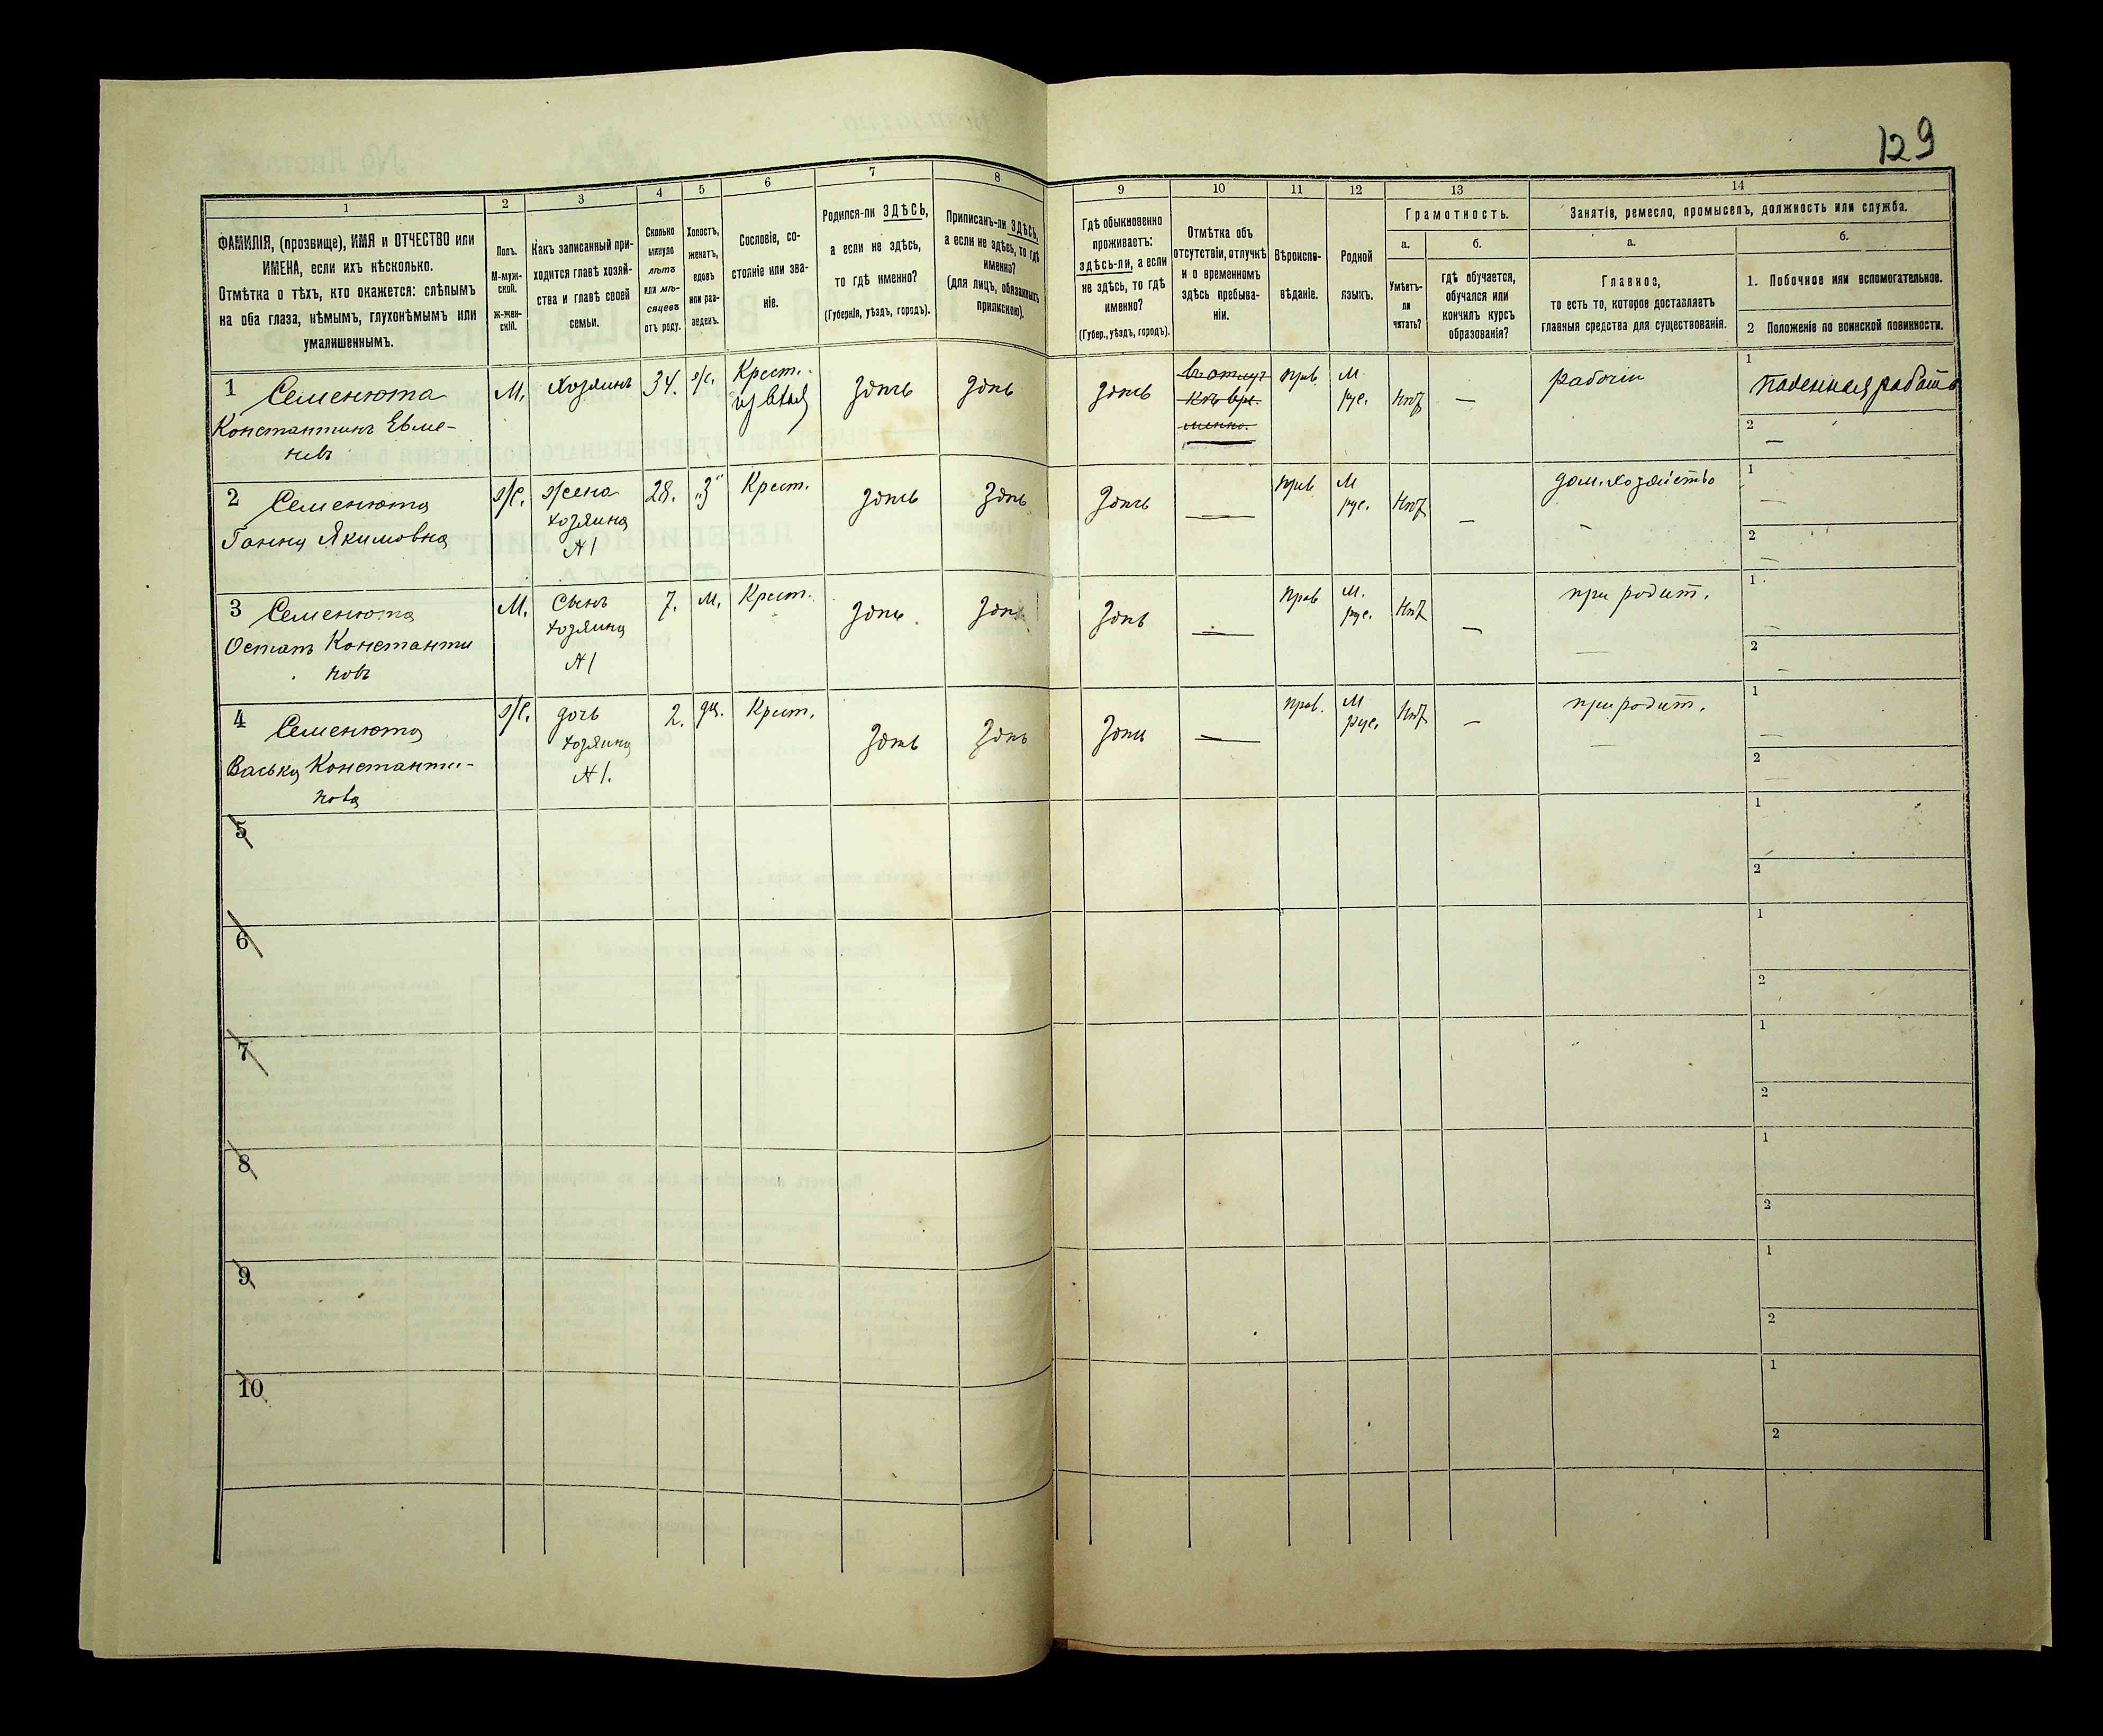 129
1
2
3
4
5
6
7
8
9
10
11
12
13
14
ФАМИЛІЯ, (прозвище), ИМЯ и ОТЧЕСТВО или
ИМЕНА, если ихъ нѣсколько.
Отмѣтка о тѣхъ, кто окажется: слѣпымъ
на оба глаза, нѣмымъ, глухонѣмымъ или
умалишеннымъ.
Полъ.
М-муж-
ской.
Ж-жен-
скій.
Какъ записанный при-
ходится главѣ хозяй-
ства и главѣ своей
семьи.
Сколько
минуло
лѣтъ
или мѣ-
сяцевъ
отъ роду.
Холостъ,
женатъ,
вдовъ
или раз-
веденъ.
Сословіе, со-
стояніе или зва-
ніе.
Родился-ли ЗДѢСЬ,
а если не здѣсь,
то гдѣ именно?
(Губернія, уѣздъ, городъ).
Приписанъ-ли ЗДѢСЬ,
а если не здѣсь, то гдѣ
именно?
(для лицъ, обязанныхъ
припискою).
Гдѣ обыкновенно
проживаетъ:
здѣсь-ли, а если
не здѣсь, то гдѣ
именно?
(Губер., уѣздъ, городъ).
Отмѣтка объ
отсутствіи, отлучкѣ
и о временномъ
здѣсь пребыва-
ніи.
Вѣроиспо-
вѣданіе.
Родной
языкъ.
Грамотность.
а.
Умѣетъ-
ли
читать?
б.
гдѣ обучается,
обучался или
кончилъ курсъ
образованія?
Занятіе, ремесло, промыселъ, должность или служба.
а.
Главное,
то есть то, которое доставляетъ
главныя средства для существованія.
б.
1. Побочное или вспомогательное.
2 Положеніе по воинской повинности.
1 Семенюта
Константинъ Евме-
невъ
М.
Хозяинъ
34.
ж.
Крест.
из влад
здѣсь
здѣсь
здѣсь
прав
М
рус.
нѣт
—
рабочій
1 Поденная работа
2 —
2 Семенюта
Ганна Якимовна
ж.
жена
хозяина
№1
28.
"З"
Крест.
здѣсь
здѣсь
здѣсь
—
прав
М
рус.
нѣт
—
дом. хозяйство
1 —
2 —
3 Семенюта
Остапъ Константи
новъ
М.
Сынъ
хозяина
№1
7.
М.
Крест.
здѣсь
здѣсь
здѣсь
—
прав
М.
рус.
нѣт
—
при родит.
1 —
2 —
4 Семенюта
Васька Константи-
нова
ж.
дочь
хозяина
№1.
2.
дѣ.
Крест.
здѣсь
здѣсь
здѣсь
—
прав.
М
рус.
нѣт
—
при родит.
1 —
2 —
5
1
2
6
1
2
7
1
2
8
1
2
9
1
2
10
1
2